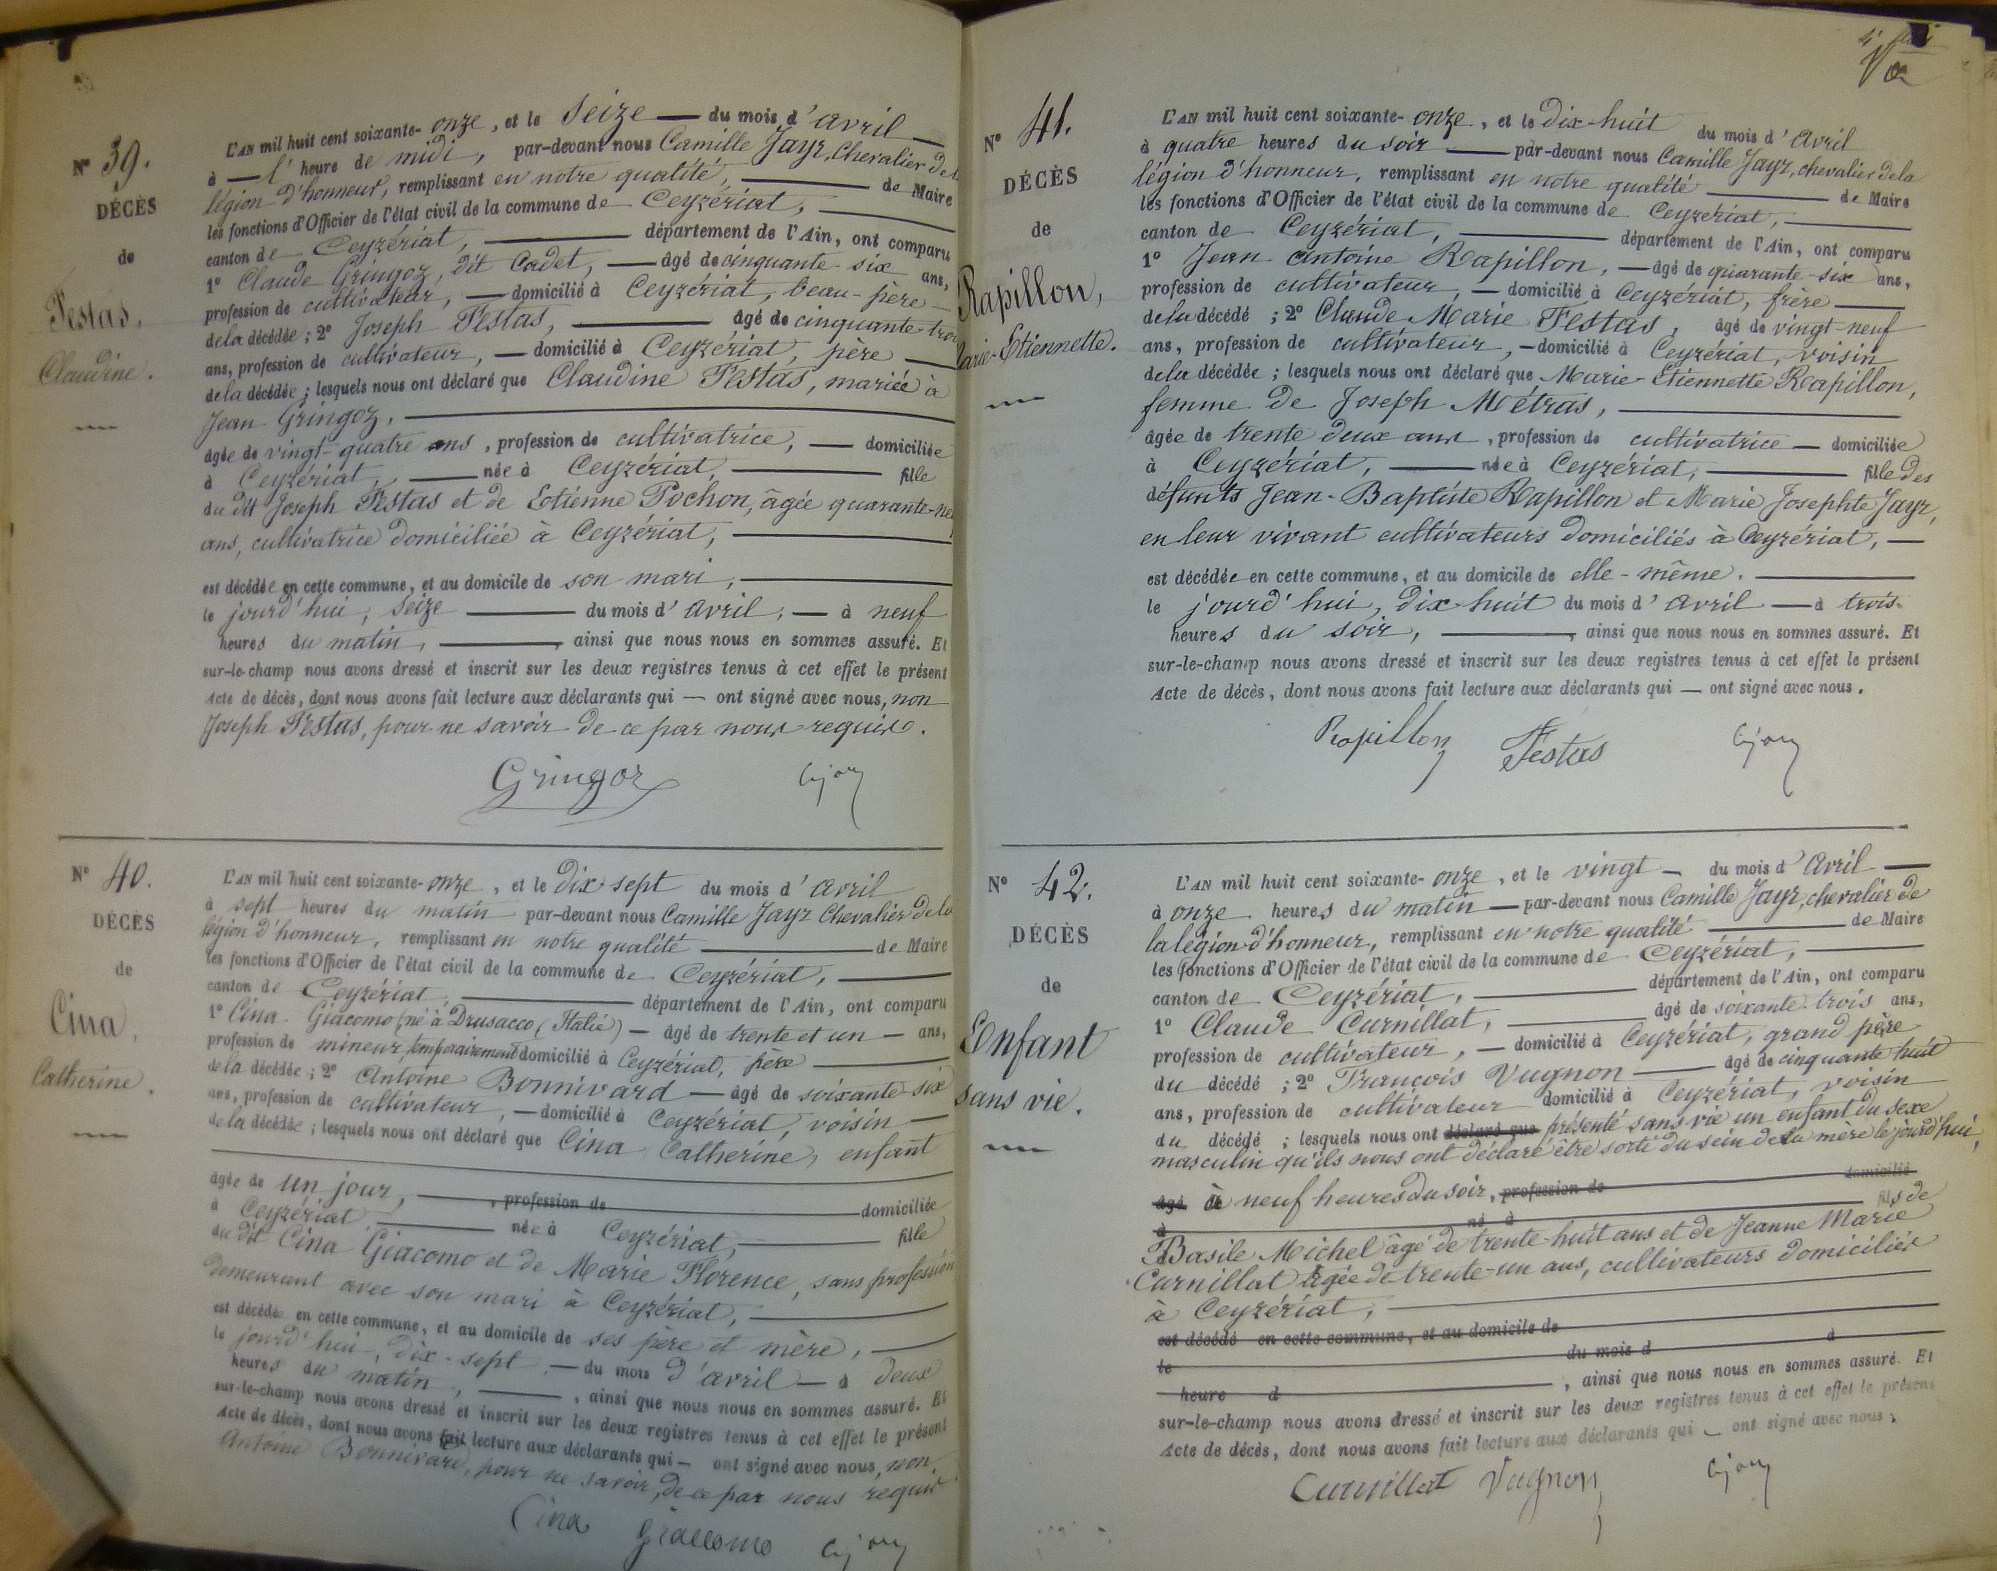 N° 39.
DÉCÈS
de
Festas,
Claudine.
L'AN mil huit cent soixante-onze, et le seize — du mois d'avril —
à — l'heure de midi, par-devant nous Camille Jayr, Chevalier de la
légion d'honneur, remplissant en notre qualité, — de Maire
les fonctions d'Officier de l'état civil de la commune de Ceyzériat, —
canton de Ceyzériat, — département de l'Ain, ont comparu
1° Claude Gringoz, dit Cadet, — âgé de cinquante-six ans,
profession de cultivateur, — domicilié à Ceyzériat, beau-père —
de la décédée ; 2° Joseph Festas, — âgé de cinquante-trois
ans, profession de cultivateur, — domicilié à Ceyzériat, père —
de la décédée ; lesquels nous ont déclaré que Claudine Festas, mariée à
Jean Gringoz, —
âgée de vingt-quatre ans, profession de cultivatrice, — domiciliée
à Ceyzériat, — née à Ceyzériat, — fille
du dit Joseph Festas et de Etiénne Pochon, âgée quarante-neuf
ans, cultivatrice domiciliée à Ceyzériat, —
est décédée en cette commune, et au domicile de son mari, —
le jourd'hui, seize — du mois d'avril, — à neuf
heures du matin, —, ainsi que nous nous en sommes assuré. Et
sur-le-champ nous avons dressé et inscrit sur les deux registres tenus à cet effet le présent
Acte de décès, dont nous avons fait lecture aux déclarants qui — ont signé avec nous, non
Joseph Festas, pour ne savoir de ce par nous requis.
Gringoz
N° 40.
DÉCÈS
de
Cina,
Catherine.
L'AN mil huit cent soixante-onze, et le dix-sept du mois d'avril
à sept heures du matin par-devant nous Camille Jayr Chevalier de la
légion d'honneur, remplissant en notre qualité — de Maire
les fonctions d'Officier de l'état civil de la commune de Ceyzériat, —
canton de Ceyzériat, — département de l'Ain, ont comparu
1° Cina Giacomo (né à Drusacco (Italie) — âgé de trente et un — ans,
profession de mineur, temporairement domicilié à Ceyzériat, père —
de la décédée ; 2° Antoine Bonnivard — âgé de soixante six
ans, profession de cultivateur, — domicilié à Ceyzériat, voisin —
de la décédée ; lesquels nous ont déclaré que Cina Catherine, enfant
âgée de un jour, —, profession de — domiciliée
à Ceyzériat, — née à Ceyzériat, — fille
du dit Cina Giacomo et de Marie Florence, sans profession
demeurant avec son mari à Ceyzériat, —
est décédée en cette commune, et au domicile de ses père et mère, —
le jourd'hui, dix-sept — du mois d'avril — à deux
heures du matin, —, ainsi que nous nous en sommes assuré. Et
sur-le-champ nous avons dressé et inscrit sur les deux registres tenus à cet effet le présent
Acte de décès, dont nous avons fait lecture aux déclarants qui — ont signé avec nous, non
Antoine Bonnivard, pour ne savoir, de ce par nous requis
Cina Giacomo
N° 41.
DÉCÈS
de
Rapillon,
Marie-Etiennette.
L'AN mil huit cent soixante-onze, et le dix-huit du mois d'avril
à quatre heures du soir — par-devant nous Camille Jayr, chevalier de la
légion d'honneur, remplissant en notre qualité — de Maire
les fonctions d'Officier de l'état civil de la commune de Ceyzériat, —
canton de Ceyzériat, — département de l'Ain, ont comparu
1° Jean-Antoine Rapillon, — âgé de quarante-six ans,
profession de cultivateur, — domicilié à Ceyzériat, frère —
de la décédé ; 2° Claude Marie Festas, âgé de vingt-neuf
ans, profession de cultivateur, — domicilié à Ceyzériat, voisin
de la décédée ; lesquels nous ont déclaré que Marie-Etiennette Rapillon,
femme de Joseph Métras, —
âgée de trente deux ans, profession de cultivatrice — domiciliée
à Ceyzériat, — née à Ceyzériat, — fille des
défunts Jean-Baptiste Rapillon et Marie Josephte Jayr,
en leur vivant cultivateurs domiciliés à Ceyzériat, —
est décédée en cette commune, et au domicile de elle-même. —
le jourd'hui, dix-huit du mois d'avril — à trois
heures du soir, —, ainsi que nous nous en sommes assuré. Et
sur-le-champ nous avons dressé et inscrit sur les deux registres tenus à cet effet le présent
Acte de décès, dont nous avons fait lecture aux déclarants qui — ont signé avec nous.
Rapillon Festas
N° 42.
DÉCÈS
de
Enfant
sans vie.
L'AN mil huit cent soixante-onze, et le vingt — du mois d'avril —
à onze heures du matin — par-devant nous Camille Jayr, chevalier de
la légion d'honneur, remplissant en notre qualité — de Maire
les fonctions d'Officier de l'état civil de la commune de Ceyzériat, —
canton de Ceyzériat, — département de l'Ain, ont comparu
1° Claude Curnillat, — âgé de soixante trois ans,
profession de cultivateur, — domicilié à Ceyzériat, grand père
du décédé ; 2° François Vugnon — âgé de cinquante huit
ans, profession de cultivateur domicilié à Ceyzériat, voisin
du décédé ; lesquels nous ont déclaré que présenté sans vie un enfant du sexe
masculin qu'ils nous ont déclaré être sorti du sein de la mère le jourd'hui,
âgé de neuf heures du soir, profession de domicilié
à né à fils de
Basile Michel âgé de trente-huit ans et de Jeanne Marie
Curnillat âgée de trente-un ans, cultivateurs domiciliés
à Ceyzériat, —
est décédé en cette commune, et au domicile de
le du mois d à
heure d, ainsi que nous nous en sommes assuré. Et
sur-le-champ nous avons dressé et inscrit sur les deux registres tenus à cet effet le présent
Acte de décès, dont nous avons fait lecture aux déclarants qui — ont signé avec nous.
Curnillat Vugnon